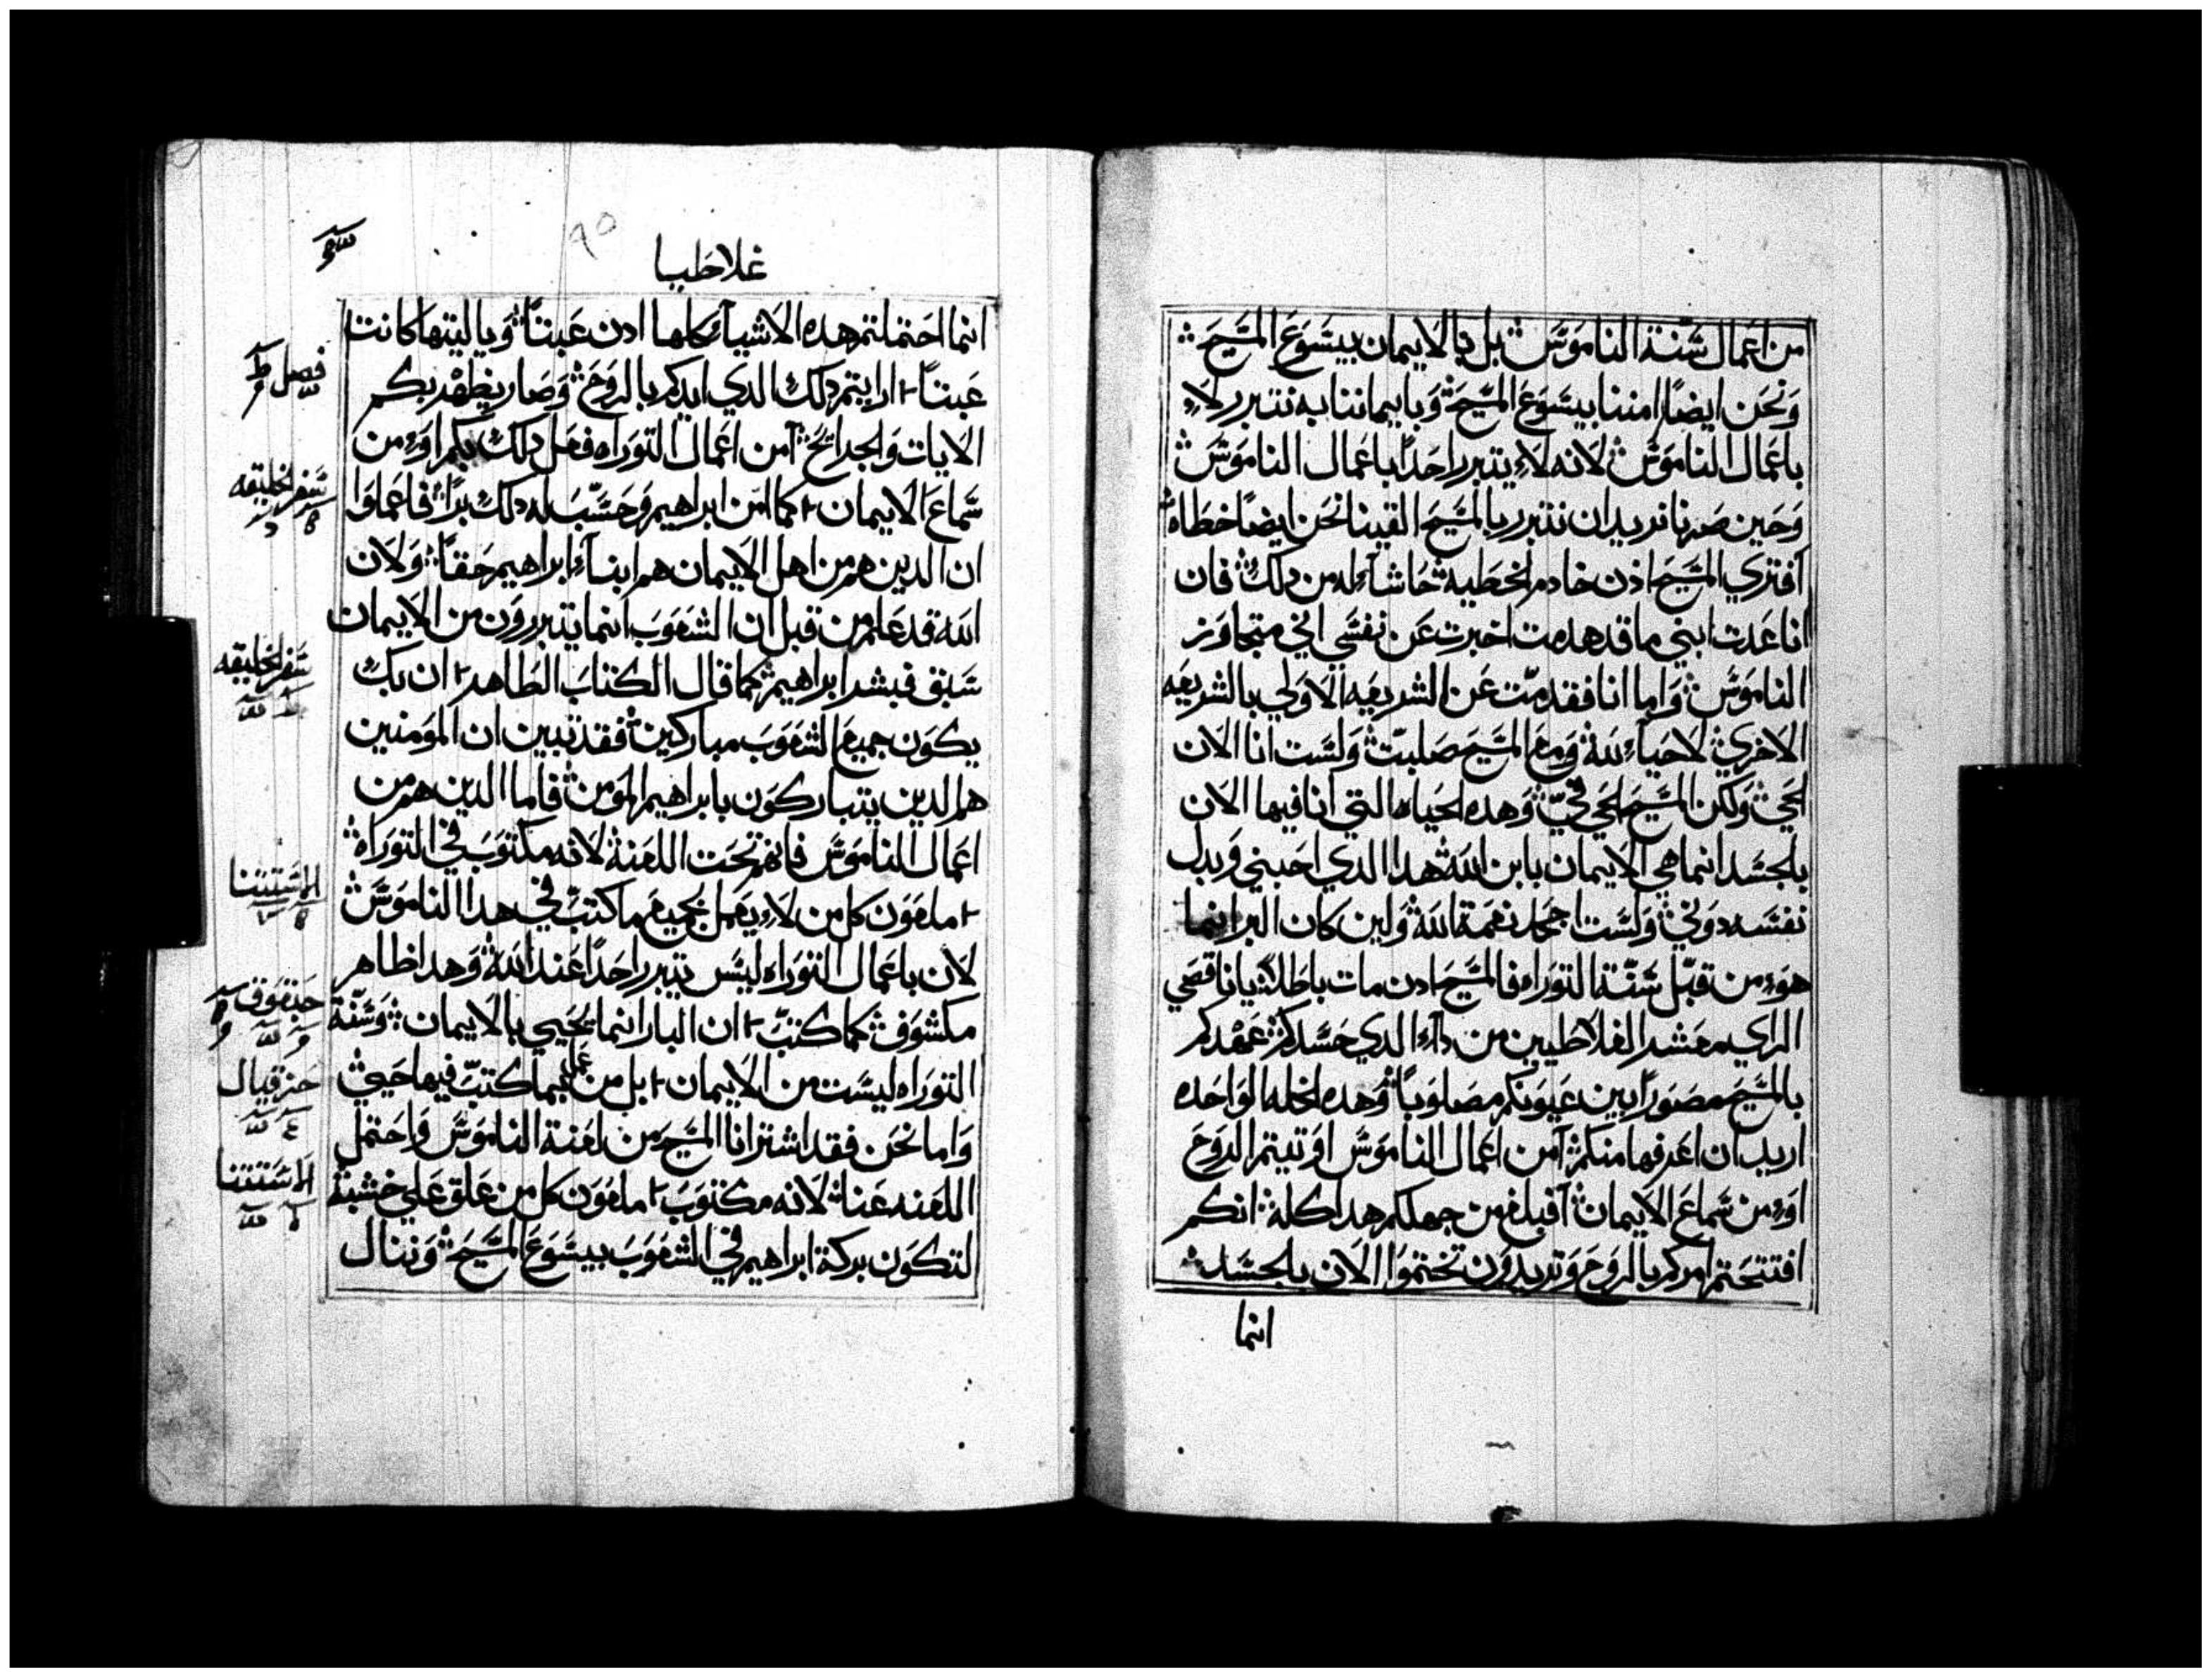 من اعمال سنة الناموس بل بالايمان بيسوع المسيح
ونحن ايضًا امننا بيسوع المسيح وبايماننا به نتبرر لاء
باعمال الناموس لانه لاء يتبرر احدًا باعمال الناموس
وحين صرنا نريد ان نتبرر بالمسيح القينا نحن ايضًا خطاه
افتري المسيح اذن خادم الخطيه حاشاء له من دلك فان
انا عدت ابني ما قد هدمت اخبرت عن نفسي اني متجاوز
الناموس واما انا فقد متّ عن الشريعه الاولي بالشريعه
الاخري لاحياء لله ومع المسيح صلبتّ ولست انا الان
احي ولكن المسيح الحي فيّ وهده الحياه التي انا فيها الان
بالجسد انما هي الايمان بابن الله هدا الدي احبني وبدل
نفسه دوني ولست اجحد نعمة الله ولين كان البر انما
هوء من قبل سنّة التوراه فالمسيح ادن مات باطلاً يا ناقصي
الراي معشر الغلاطيين من داء الدي حسدكم عهدكم
بالمسيح مصورًا بين عيونكم مصلوبًا وهده الخله الواحده
اريد ان اعرفها منكم آمن اعمال الناموس اوتيتم الروح
اوء من سماع الايمان افبلغ من جهلكم هدا كله انكم
افتتحتم امركم بالروح وتريدون تختموا الان بالجسد
انما
غلاطيا
انما احتملتم هده الاشياء كلها ادن عبتاً ويا ليتها كانت
عبتاً ارايتم دلك الدي ايدكم بالروح وصار يظهر بكم
الايات والجرايح آمن اعمال التوراه فعل دلك بكم اوء من
سماع الايمان كما امن ابراهيم وحسّب له دلك برًا فاعملوا
ان الدين هم من اهل الايمان هم ابناء ابراهيم حقاً ولان
الله قد علم من قبل ان الشعوب انما يتبررون من الايمان
سبق فبشر ابراهيم كما قال الكتاب الطاهر ان بك
يكون جميع الشعوب مباركين فقد تبين ان المومنين
هم الدين يتباركون بابراهيم المومن فاما الدين هم من
اعمال الناموس فانهم تحت اللعنة لانه مكتوب في التوراه
ملعون كل من لاء يعمل بجميع ما كتبّ في هدا الناموس
لان باعمال التوراه ليس يتبرر احدًا عند الله وهدا ظاهر
مكشوف كما كتبّ ان البار انما يحيي بالايمان وسنّة
التوراه ليست من الايمان بل من عمل بما كتبّ فيها حيي
واما نحن فقد اشترانا المسيح من لعنة الناموس واحتمل
اللعنه عنا لانه مكتوب ملعون كل من علق علي خشبة
لتكون بركة ابراهيم في الشعوب بيسوع المسيح وننال
فصل
سفر الخليقه
سفر الخليقه
الاستتنا
حبقوق
حزقيال
الاستتنا